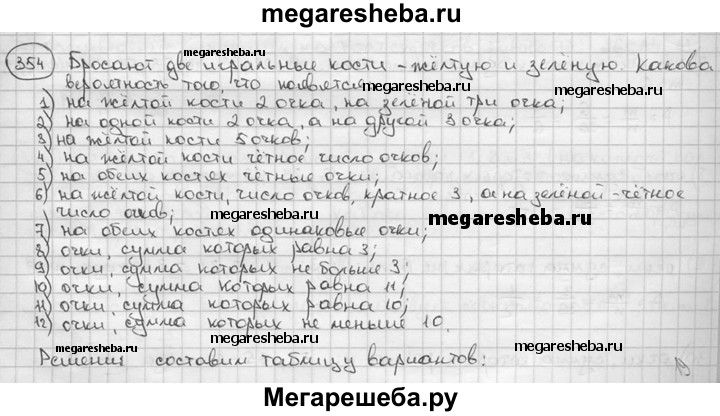 megaresheba.ru
354 Бросают две игральные кости - жёлтую и зелёную. Какова
megaresheba.ru
вероятность того, что появятся
megaresheba.ru
1) на жёлтой кости 2 очка, на зелёной три очка;
2) на одной кости 2 очка, а на другой 3 очка;
3) на жёлтой кости 5 очков;
megaresheba.ru
megaresheba.ru
4) на жёлтой кости чётное число очков;
5) на обеих костях чётные очки;
6) на жёлтой кости, число очков, кратное 3, а на зелёной - чётное
число очков;
megaresheba.ru
megaresheba.ru
7) на обеих костях одинаковые очки;
8) очки, сумма которых равна 3;
megaresheba.ru
9) очки, сумма которых не больше 3;
10) очки, сумма которых равна 11;
megaresheba.ru
11) очки, сумма которых равна 10;
12) очки, сумма которых не меньше 10.
megaresheba.ru
megaresheba.ru
Решения составим таблицу вариантов:
Мегарешеба.ру